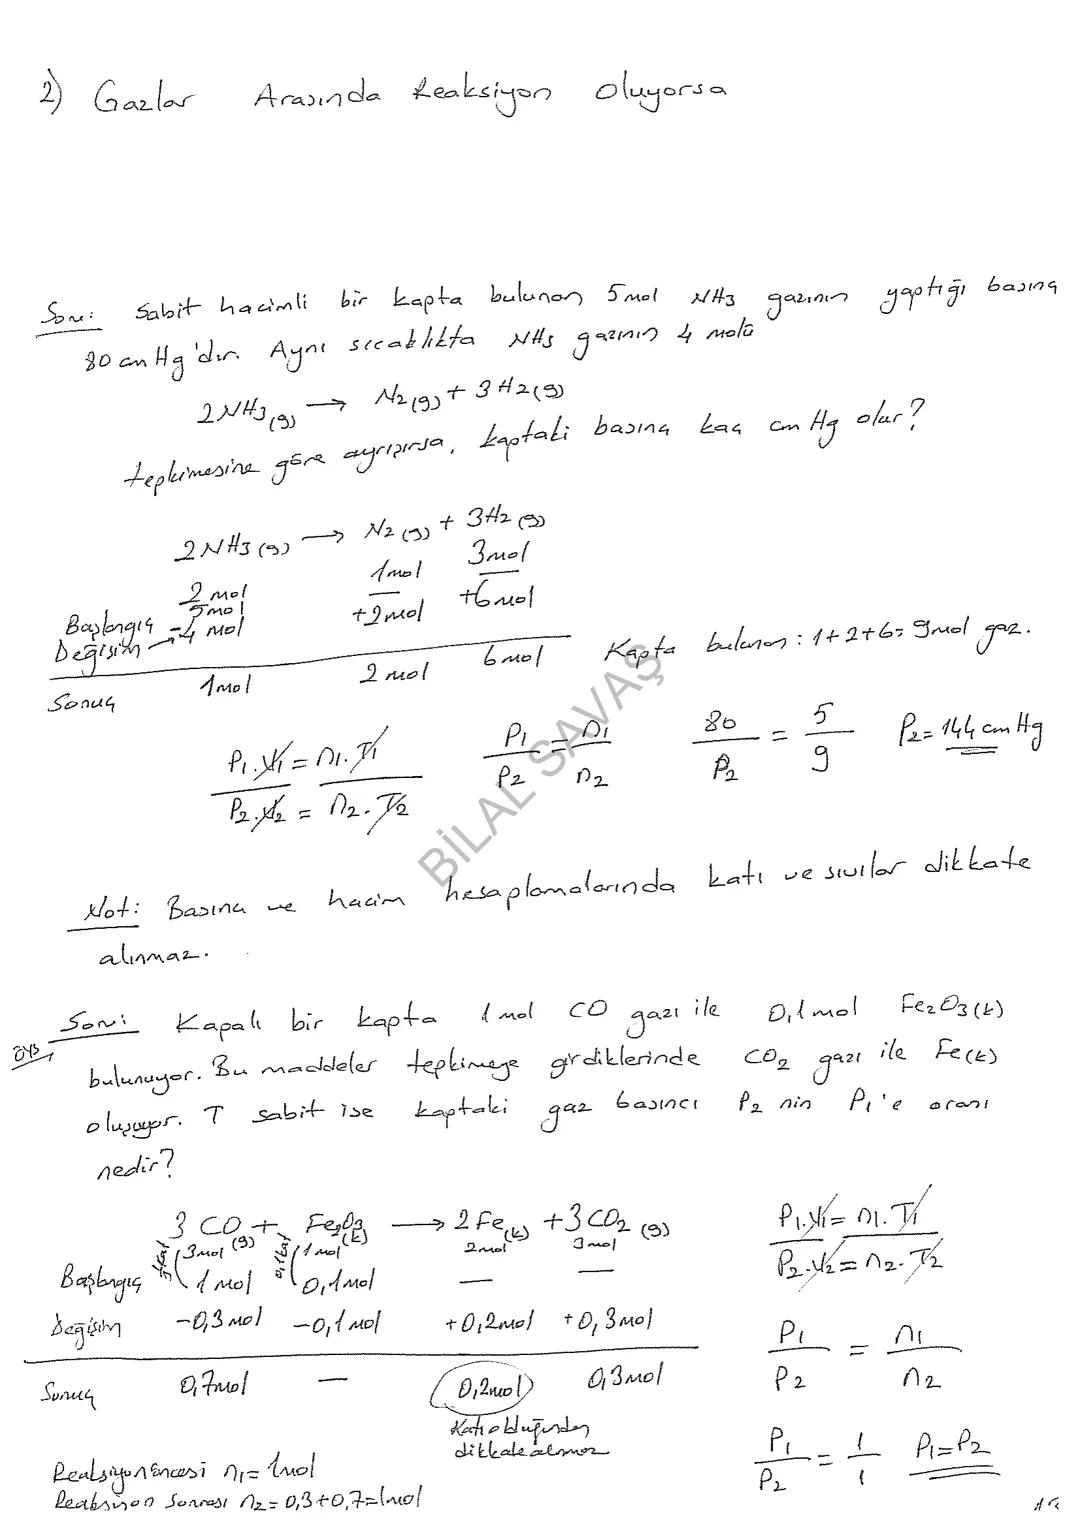 2) Gazlar Arasında Reaksiyon Oluyorsa
Soru: Sabit hacimli bir kapta bulunan 5 mol NH3 gazının yaptığı basınç
80 cm Hg'dır. Aynı sıcaklıkta NH3 gazının 4 molü
2NH3(g) → N2(g) + 3H2(g)
tepkimesine göre ayrışırsa, kaptaki basınç kaç cm Hg olur?
2NH3(g) → N2(g) + 3H2(g)
2 mol 1mol 3mol
Başlangıç 5mol — —
Değişim → -4 mol +2mol +6mol
Sonuç 1mol 2 mol 6 mol
Kapta bulunan: 1+2+6= 9mol gaz.
P1.V1 = n1.T1
P2.V2 = n2.T2
P1/P2 = n1/n2
80/P2 = 5/9
P2= 144 cm Hg
BİLAL SAVAŞ
Not: Basınç ve hacim hesaplamalarında katı ve sıvılar dikkate
alınmaz.
Soru: Kapalı bir kapta 1 mol CO gazı ile 0,1 mol Fe2O3(k)
ÖYS
bulunuyor. Bu maddeler tepkimeye girdiklerinde CO2 gazı ile Fe(k)
oluşuyor. T sabit ise kaptaki gaz basıncı P2 nin P1'e oranı
nedir?
3 CO(g) + Fe2O3(k) → 2Fe(k) + 3CO2(g)
3mol 1mol 2mol 3mol
Başlangıç 1 mol 0,1mol — —
Değişim -0,3 mol -0,1 mol +0,2mol +0,3mol
Sonuç 0,7mol — 0,2mol 0,3mol
Katı olduğundan
dikkate alınmaz
P1.V1 = n1.T1
P2.V2 = n2.T2
P1/P2 = n1/n2
P1/P2 = 1/1 P1=P2
Reaksiyon öncesi n1= 1mol
Reaksiyon sonrası n2= 0,3+0,7=1mol